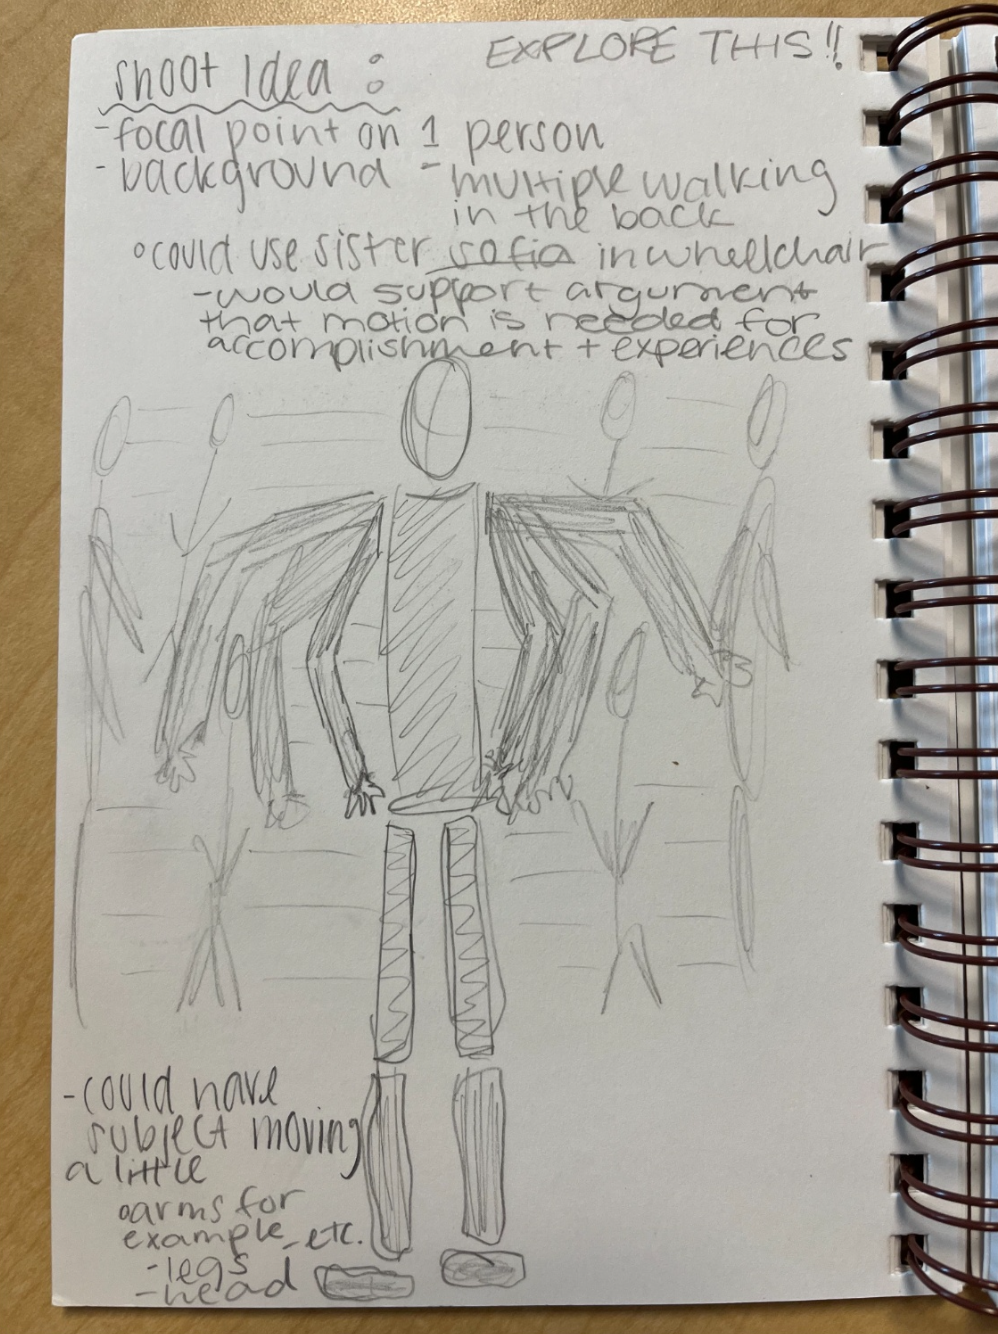 EXPLORE THIS!!
shoot Idea :
-focal point on 1 person
- background - multiple walking
in the back
°could use sister sofia in wheelchair
-would support argument
that motion is needed for
accomplishment + experiences
-could have
subject moving
a little
°arms for
example, etc.
-legs
-head